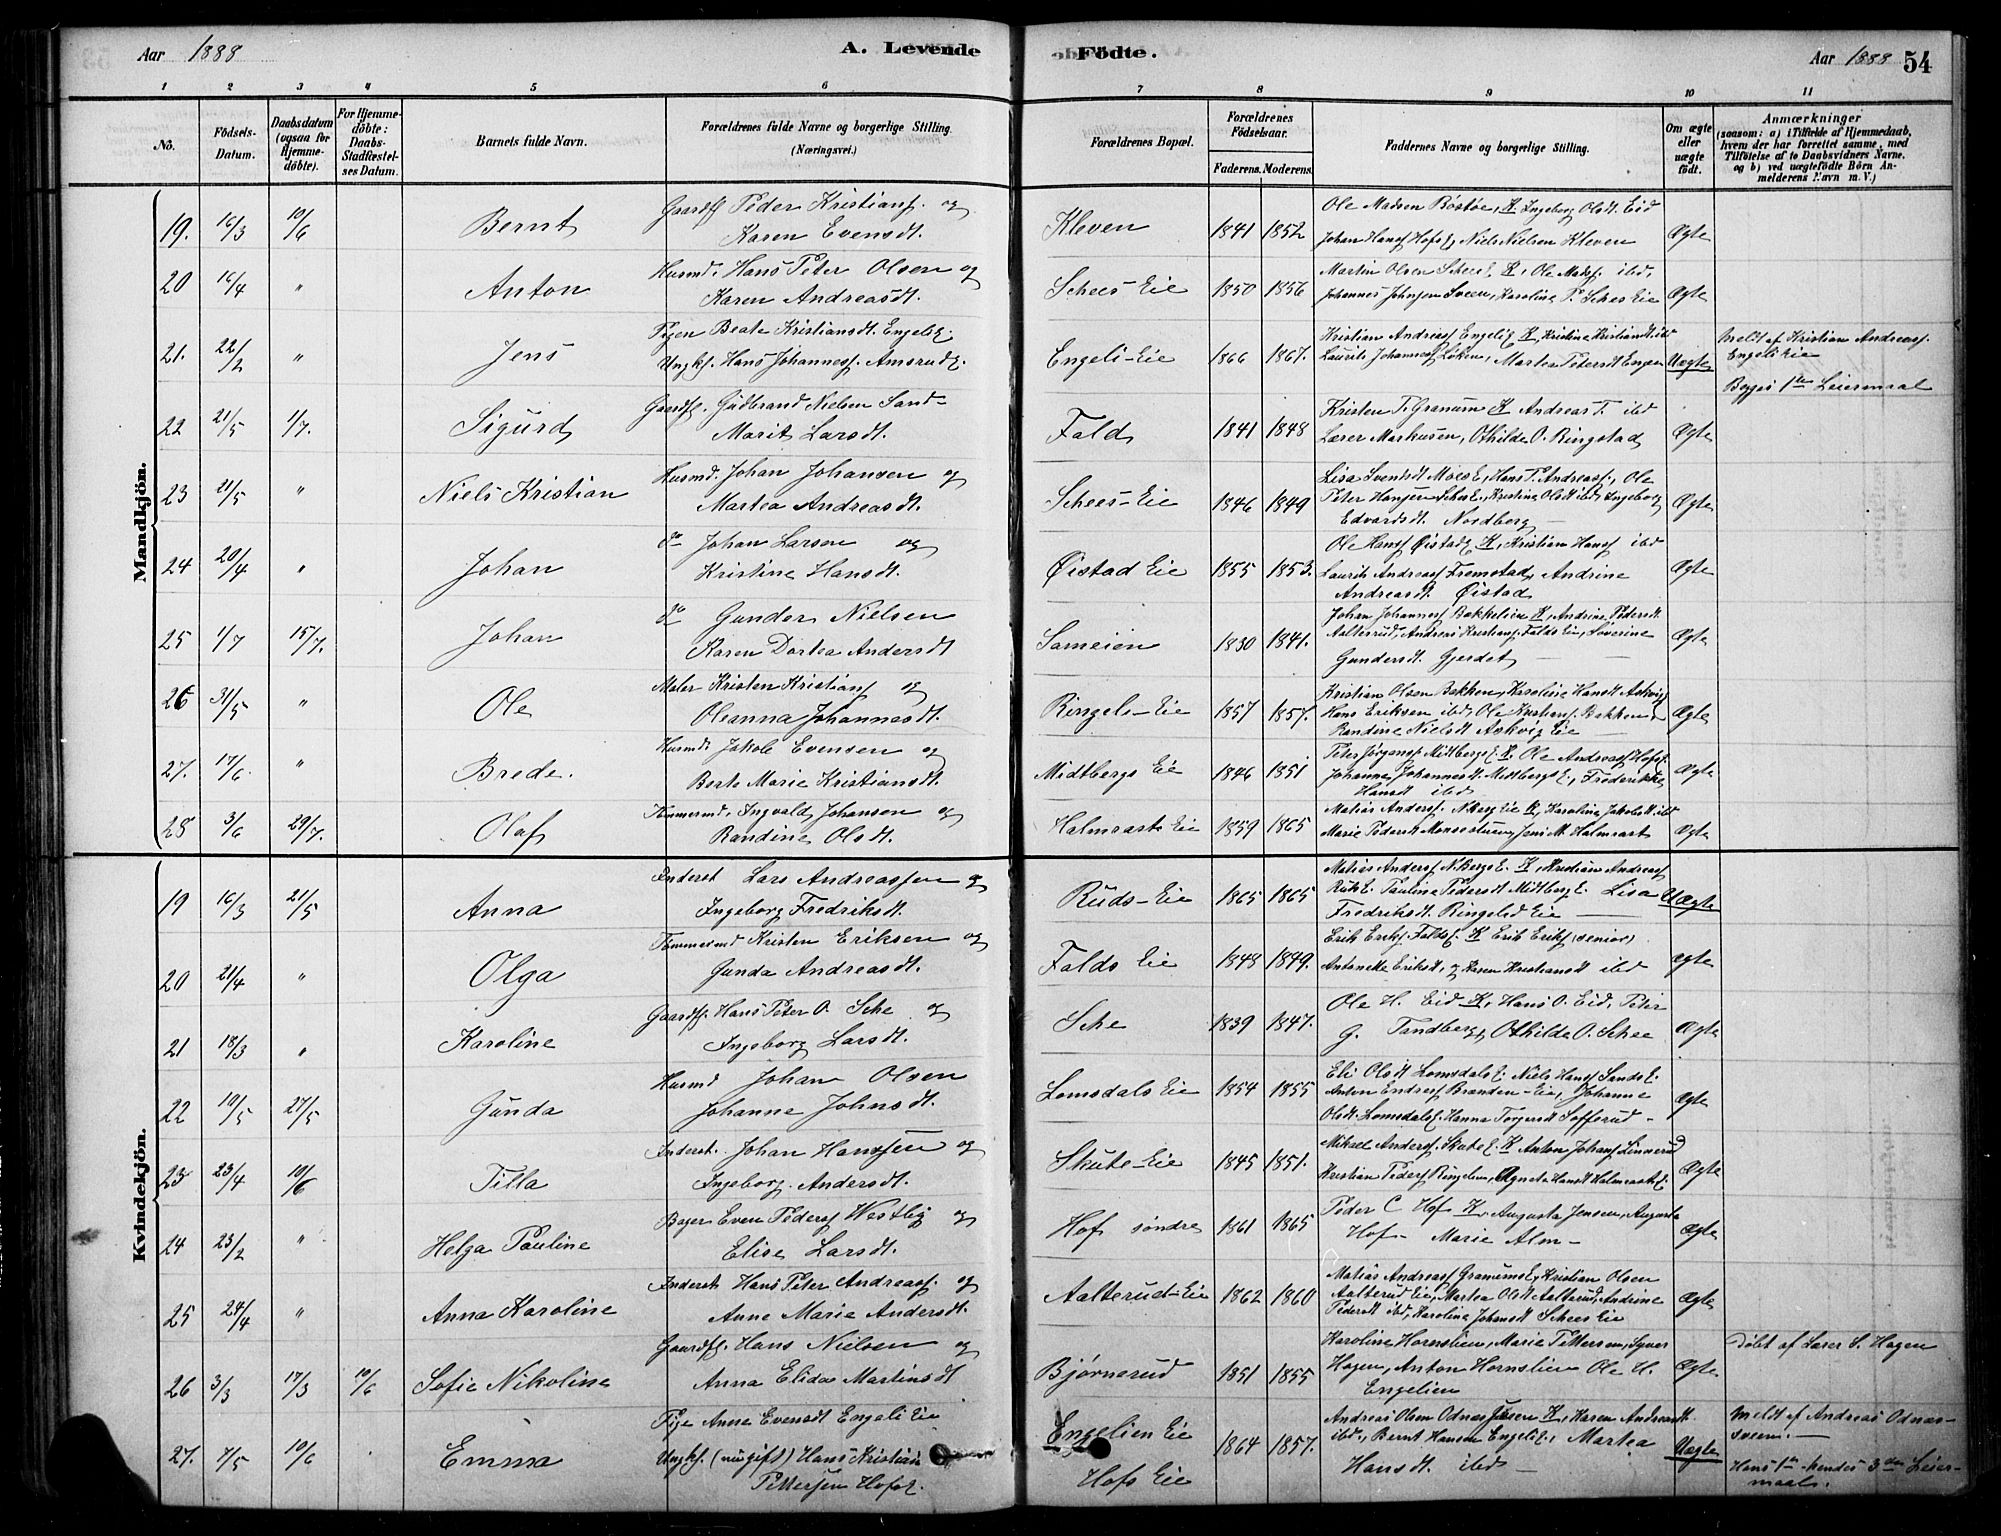 Aar 1888
A. Levende Födte.
Aar 1888 54
1 2 3 4 5 6 7 8 9 10 11
No. Födsels-Datum. Daabsdatum (ogsaa for Hjemmedöbte). For Hjemmedöbte: Daabs-Stadfæstelses Datum. Barnets fulde Navn. Forældrenes fulde Navne og borgerlige Stilling. (Næringsvei.) Forældrenes Bopæl. Forældrenes Födselsaar. Faderens. Moderens. Faddernes Navne og borgerlige Stilling. Om ægte eller uægte födt. Anmærkninger (saasom: a) i Tilfælde af Hjemmedaab, hvem der har forrettet samme, med Tilföielse af to Daabsvidners Navne, og b) ved uægtefödte Börn Anmelderens Navn m. V.)
Mandkjön.
19. 16/3 10/6 Bernt Gaardbr. Peder Kristians. og Karen Evensdt. Kleven 1841 1852 Ole Madsen Böstøe, K. Ingeborg Olsdt. Eid Johan Hans. Hofs E., Niels Nielsen Kleven Ægte
20 16/4 " Anton Husmd. Hans Peter Olsen og Karen Andreasdt. Schees Eie 1850 1856 Martin Olsen Schees E., K. Ole Mads. ibd, Johannes Johnsen Sveen, Karoline P. Schees Eie Ægte
21. 22/2 " Jens Pigen Beate Kristiansdt. Engeli E. Ungk. Hans Johanness. Amsrud E. Engeli-Eie 1866 1867. Kristian Andreass. Engeli E. K, Kristine Kristiansdt. ibd Laurits Johanness. Løken, Martea Petersdt Engen Uægte Meldt af Kristian Andreass. Engeli Eie Begges 1ste Leiermaal
22 21/5 1/7. Sigurd Gaardbr. Gudbrand Nielsen Sand- Marit Larsdt. Fald 1841 1848 Kristen T. Granum K Andreas T. ibd Lærer Markusen, Othilde O. Ringstad Ægte
23 21/5 " Niels Kristian Husmd. Johan Johansen og Martea Andreasdt. Schees-Eie 1846 1849 Lisa Svendsdt Moes E, Hans P. Andreass., Ole Peter Hansen Schees E., Kristine Olsdt ibd, Ingeborg Edvardsdt. Nordberg Ægte
24 20/4 " Johan do Johan Larsen og Kristine Hansdt. Øistad Eie 1855 1853. Ole Hans. Øistad E. K, Kristian Hans. ibd Laurits Andreass. Fremstad, Andrine Andreasdt. Øistad Ægte
25 1/7 15/7. Johan do Gunder Nielsen Karen Dortea Andersdt Sameien 1830 1841. Johan Johanness. Bakkelien K, Andrine Pedersdt Aalterud, Andreas Kristians. Falds Eie, Severine Gundersdt. Gjerdet Ægte
26 31/5 " Ole Maler Kristen Kristians. og Oleanna Johannesdt. Ringels-Eie 1857 1857. Kristian Olsen Bakken, Karoline Hansdt Askvig Hans Eriksen ibd, Ole Kristians. Bakken & Randine Nielsdt Askvig Eie Ægte
27. 17/6. " Brede. Husmd. Jakob Evensen og Berte Marie Kristiansdt. Midtbergs Eie 1846 1851 Peter Jørgens. Midtbergs E. K. Ole Andreas. Hofs E. Johanne Johannesdt. Midtbergs E., Frederikke Hansdt ibd Ægte
28 3/6 29/7. Olaf Tömmermd. Ingvald Johansen og Randine Olsdt. Halmrasts Eie 1859 1865 Matias Anders. N.Berg Eie K, Karoline Jakobsdt ibd Marie Pedersdt Monsestuen, Jens M. Halmrast Ægte
Kvindekjön.
19 16/3 21/5 Anna Inderst. Lars Andreassen og Ingeborg Fredriksdt. Ruds-Eie 1865 1865 Matias Anders. N.Bergs E. K, Kristian Andreass Ruds E. Paulina Pedersdt Midtberg E. Lisa Fredriksdt. Ringelsd Eie Uægte
20 21/4 " Olga Tömmermd Kristen Eriksen og Gunda Andreasdt. Falds Eie 1848 1849. Erik Eriks. Falds E. K Erik Eriks (senior) Antonette Eriksdt, og Karen Kristiansdt ibd ægte
21 18/3 " Karoline Gaardbr. Hans Peter O. Sche og Ingeborg Larsdt. Sche 1839 1847. Ole H. Eid K, Hans O. Eid, Peter G. Tandberg, Othilde O. Schee Ægte
22 10/5 27/5 Gunda Husmd Johan Olsen Johanne Johnsdt. Lomsdals Eie 1854 1855 Eli Olsdt Lomsdals E. Niels Hans. Sands E. Anton Endres. Branden-Eie, Johanne Olsdt. Lomsdals E. Hanna Torgersdt Sofferud Ægte
23 23/4 10/6 Tilla Inderst. Johan Hanssen og Ingeborg Andersdt. Skute-Eie 1845 1851. Mikael Anders. Skute E. K Anton Johans. Linnerud Kristian Peders. Ringelien, Agnete Hansdt Halmrasts E. Ægte
24 23/2 " Helga Pauline Bager Even Peders. Westlig og Elise Larsdt. Hof søndre 1861 1865 Peder C Hof K, Augusta Jensen, Augusta Hof- Marie Alm- Ægte
25 24/4 " Anna Karoline Inderst. Hans Peter Andreass. og Anne Marie Andersdt. Aalterud-Eie 1862 1860 Matias Andreass. Granums E, Kristian Olsen Aalterud Eie, Martea Olsdt Aalterud, Andrine Pedersdt ibd, Karoline Johansdt Schees Eie Ægte
26 3/3 17/3 10/6 Sofie Nikoline Gaardbr. Hans Nielsen og Anna Elidas Martinsdt Bjørnerud 1851 1855 Karoline Hornslien, Marie Pettersen, Syver Hagen, Anton Hornslien Ole H. Engelien Ægte Döbt af Lærer S. Hagen
27. 7/5 10/6 Emma Pige Anne Evensdt Engeli Eie Ungk. (nugift) Hans Kristian Pettersen Hofs E. Engelien Eie Hofs Eie 1864 1857. Andreas Olsen Odnæs Sveen K, Karen Andreasdt. ibd, Bernt Hansen Engeli E., Martea Hansdt. ibd Uægte Meldt af Andreas Odnæssveen. Hans 1ste hendes 3die Leiermaal.